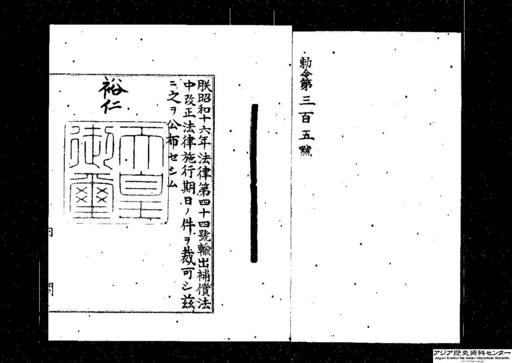 勅令第三百五號
朕昭和十六年法律第四十四號輸出補償法
中改正法律施行期日ノ件ヲ裁可シ茲
ニ之ヲ公布セシム
裕仁
天皇
御璽
内
閣
アジア歴史資料センター
Japan Center for Asian Historical Records